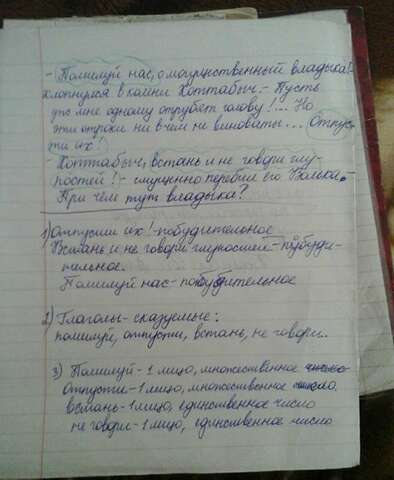 - Помилуй нас, о могущественный владыка! -
хлопнулся в камни Хоттабыч. - Пусть
уть мне одному отрубят голову!... Но
эти отроки ни в чем не виноваты... (Отпус-
ти их!)
- Хоттабыч, встань и не говори глу-
постей! - смущенно перебил его Волька.
При чём тут владыка?
1) Отпусти их! - побудительное
Встань и не говори глупостей - побуди-
тельное.
Помилуй нас - побудительное
2) Глаголы - сказуемые:
помилуй, отпусти, встань, не говори.
3) Помилуй - 1 лицо, множественное число
Отпусти - 1 лицо, множественное число
встань - 1 лицо, единственное число
не говори - 1 лицо, единственное число